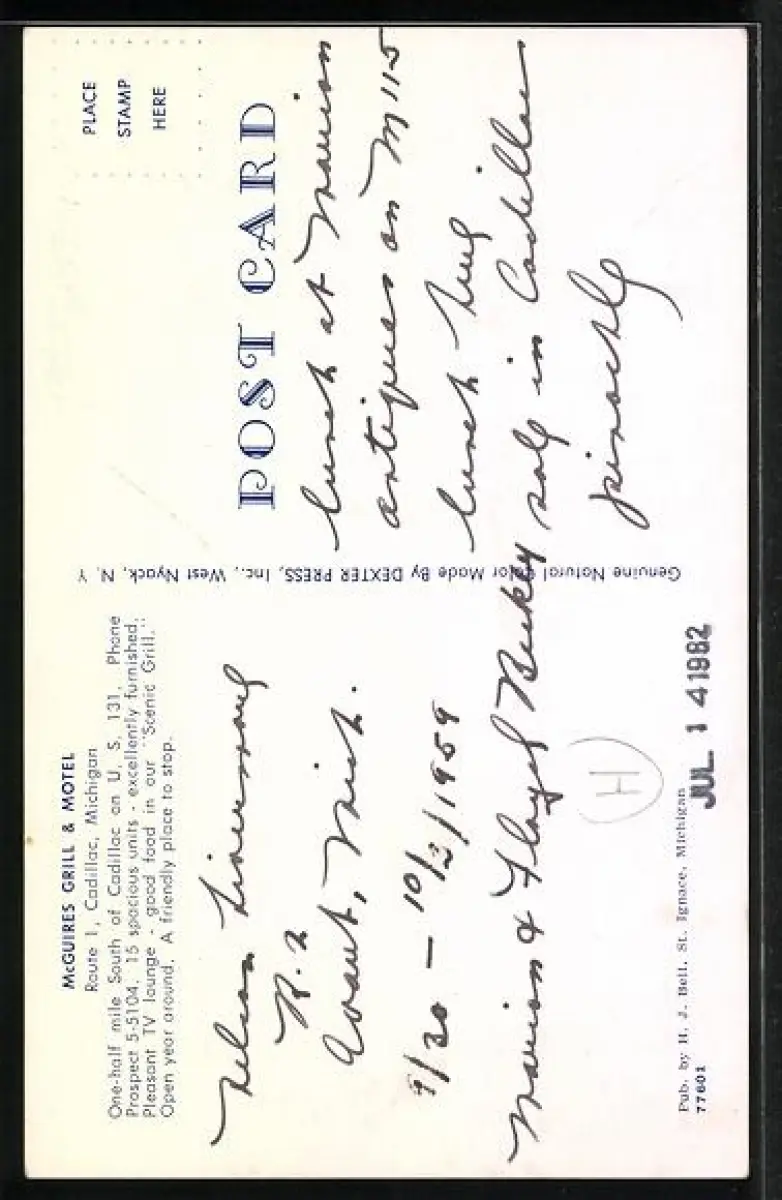 McGUIRES GRILL & MOTEL
Route 1, Cadillac, Michigan
One-half mile South of Cadillac on U. S. 131. Phone
Prospect 5-5104. 15 spacious units - excellently furnished.
Pleasant TV lounge - good food in our "Scenic Grill."
Open year around. A friendly place to stop.
Nelson
R. 2
Grant, Mich.
9/30 - 10/3/1959
Marion & Floyd
Pub. by H. J. Bell, St. Ignace, Michigan
77601
JUL 14 1982
H
Genuine Natural Color Made By DEXTER PRESS, Inc., West Nyack, N. Y
PLACE
STAMP
HERE
POST CARD
lunch at Marion
antiques on M 115
lunch
in Cadillac
pinochle